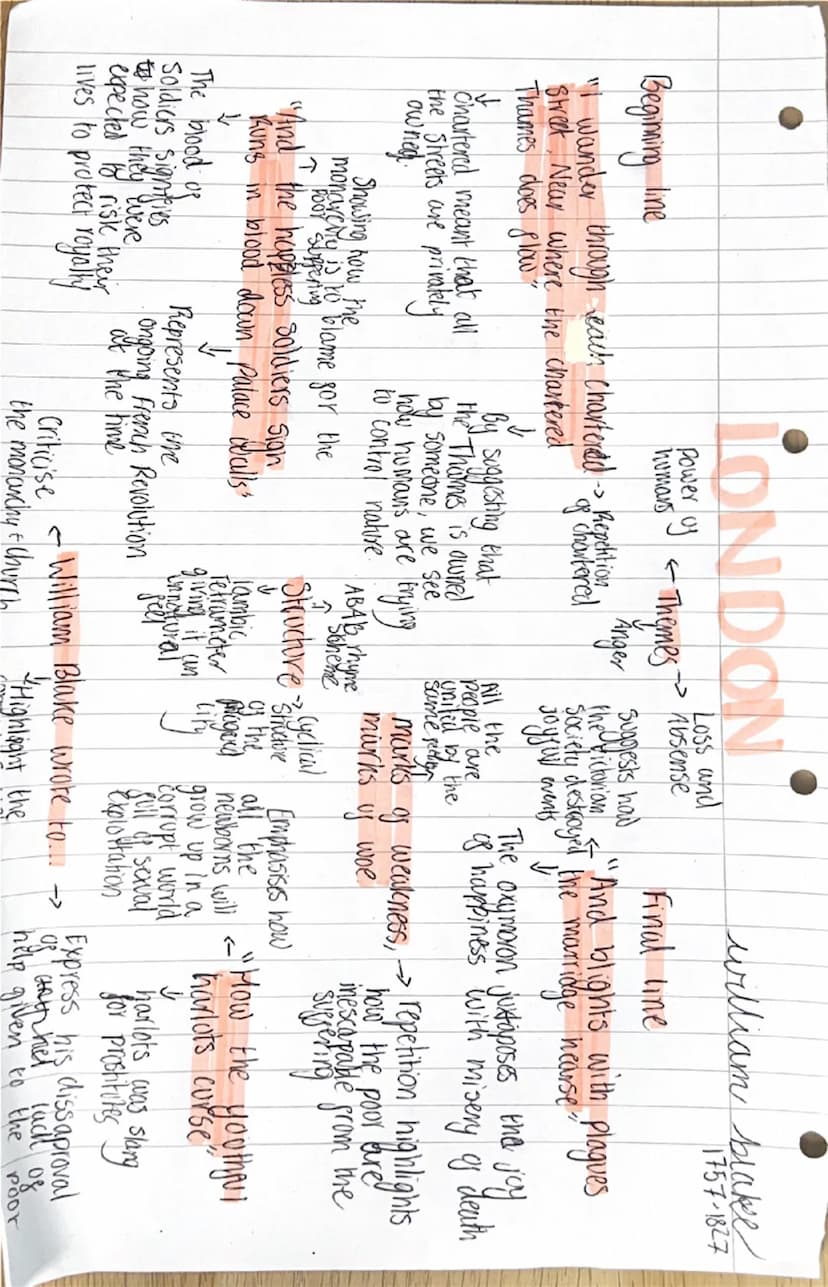 LONDON
william blake
1757-1827
Beginning line
"I wander through each chartered
street, Near where the chartered
Thames does flow"
→ Repitition
of chartered
Chartered meant that all
the streets are privately
owned.
By suggesting that
the Thames is owned
by someone, we see
how humans are trying
to control nature.
power of
humans
← Themes →
Anger
Loss and
Absense
Final line
"And blights with plagues
the marridge hearse"
suggests how
the victorian
society destroyed
joyful events
The oxymoron juxtaposes the joy
of happiness with misery of death
Showing how the
monarchy is to blame for the
poor suffering
"And the hapless soldiers sign
Runs in blood down palace walls"
The blood of
soldiers signifies
how they were
expected to risk their
lives to protect royalty
Represents the
ongoing French Revolution
at the time
ABAB rhyme
scheme
Structure → cyclical
structure
of the
plagued
city
Iambic
Tetrameter
giving it an
unnatural
feel
All the
people are
united by the
same
marks of weakness,
marks of woe
→ repetition highlights
how the poor are
inescapable from the
suffering
"How the youthful
harlots curse"
Emphasises how
all the
newborns will
grow up in a
corrupt world
full of sexual
exploitation
harlots was slang
for prostitutes
← William Blake wrote to... →
criticise
the monarchy + church
Highlight the
Express his dissaproval
of lack of
help given to the poor